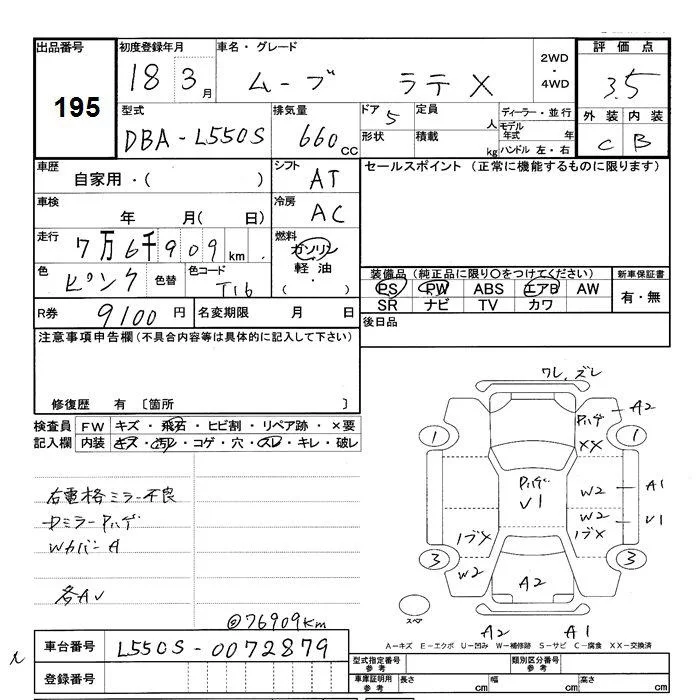 出品番号 初度登録年月 車名・グレード 2WD・4WD 評価点
195 18 3月 ムーブ ラテ X 3.5
型式 排気量 ドア 5 定員 人 ディーラー・並行 外装 内装
DBA-L550S 660cc 形状 積載 kg モデル年式 年 ハンドル 左・右 C B
車歴 自家用・( ) シフト AT セールスポイント (正常に機能するものに限ります)
車検 年 月( 日) 冷房 AC
走行 7万6千909km 燃料 ガソリン 軽油・( )
色 ピンク 色替 色コード T16 装備品 (純正品に限り○をつけてください) 新車保証書
PS PW ABS エアB AW 有・無
SR ナビ TV カワ
R券 9100円 名変期限 月 日 後日品
注意事項申告欄 (不具合内容等は具体的に記入して下さい)
修復歴 有 〔箇所 〕
検査員 FW キズ・飛石・ヒビ割・リペア跡・×要
記入欄 内装 キズ・汚レ・コゲ・穴・スレ・キレ・破レ
右電格ミラー不良
ミラーPハゲ
WカバーA
各AU
@76909km
ワレ、ズレ
Pハゲ A2
1 XX 1
Pハゲ W2 A1
V1 W2 V1
X X
3 W2 A2 3
スペア
A2 A1
A-キズ E-エクボ U-凹み W-補修跡 S-サビ C-腐食 XX-交換済
車台番号 L550S-0072879
登録番号
型式指定番号 参考 類別区分番号 参考
車庫証明用 参考 長さ cm 幅 cm 高さ cm